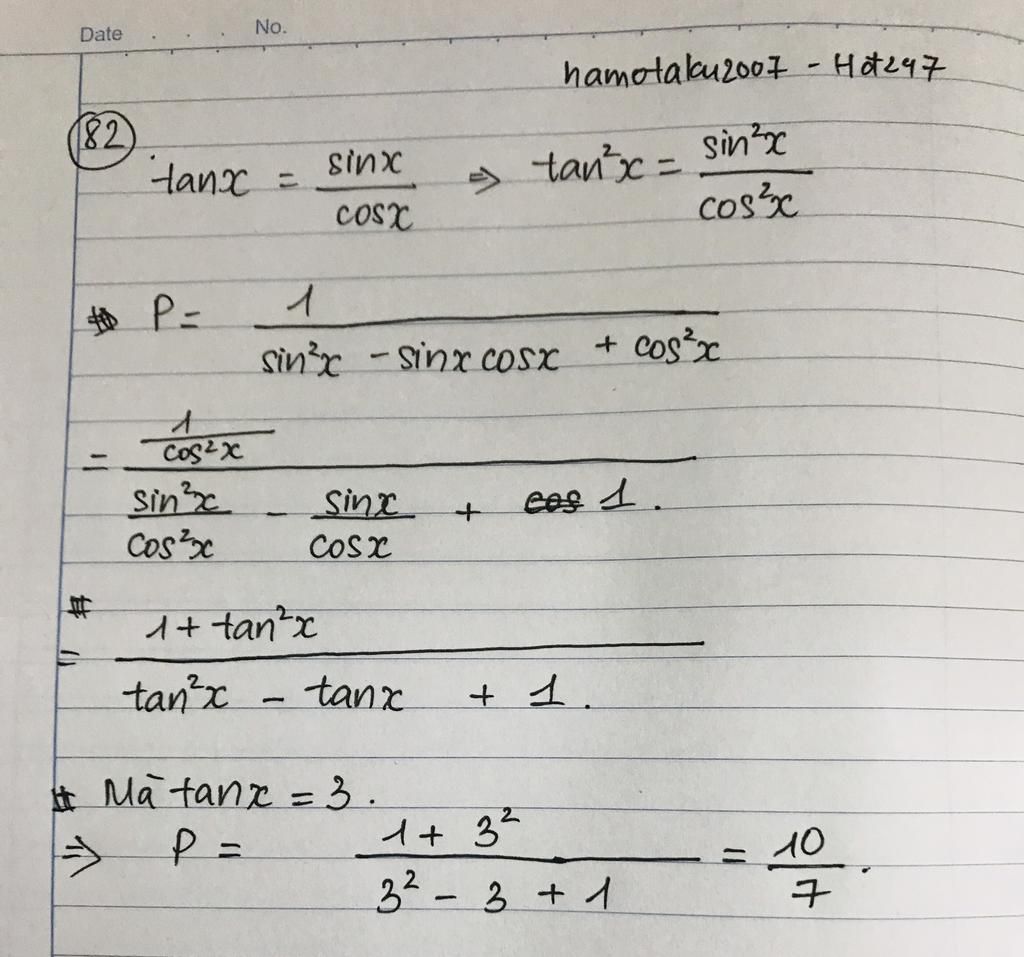 Date . . . No.
hamotaku2007 - Hot247
82
tanx = sinx/cosx ⇒ tan²x = sin²x/cos²x
P = 1/(sin²x - sinx cosx + cos²x)
= (1/cos²x)/(sin²x/cos²x - sinx/cosx + 1).
= (1 + tan²x)/(tan²x - tanx + 1).
Mà tanx = 3.
⇒ P = (1 + 3²)/(3² - 3 + 1) = 10/7.